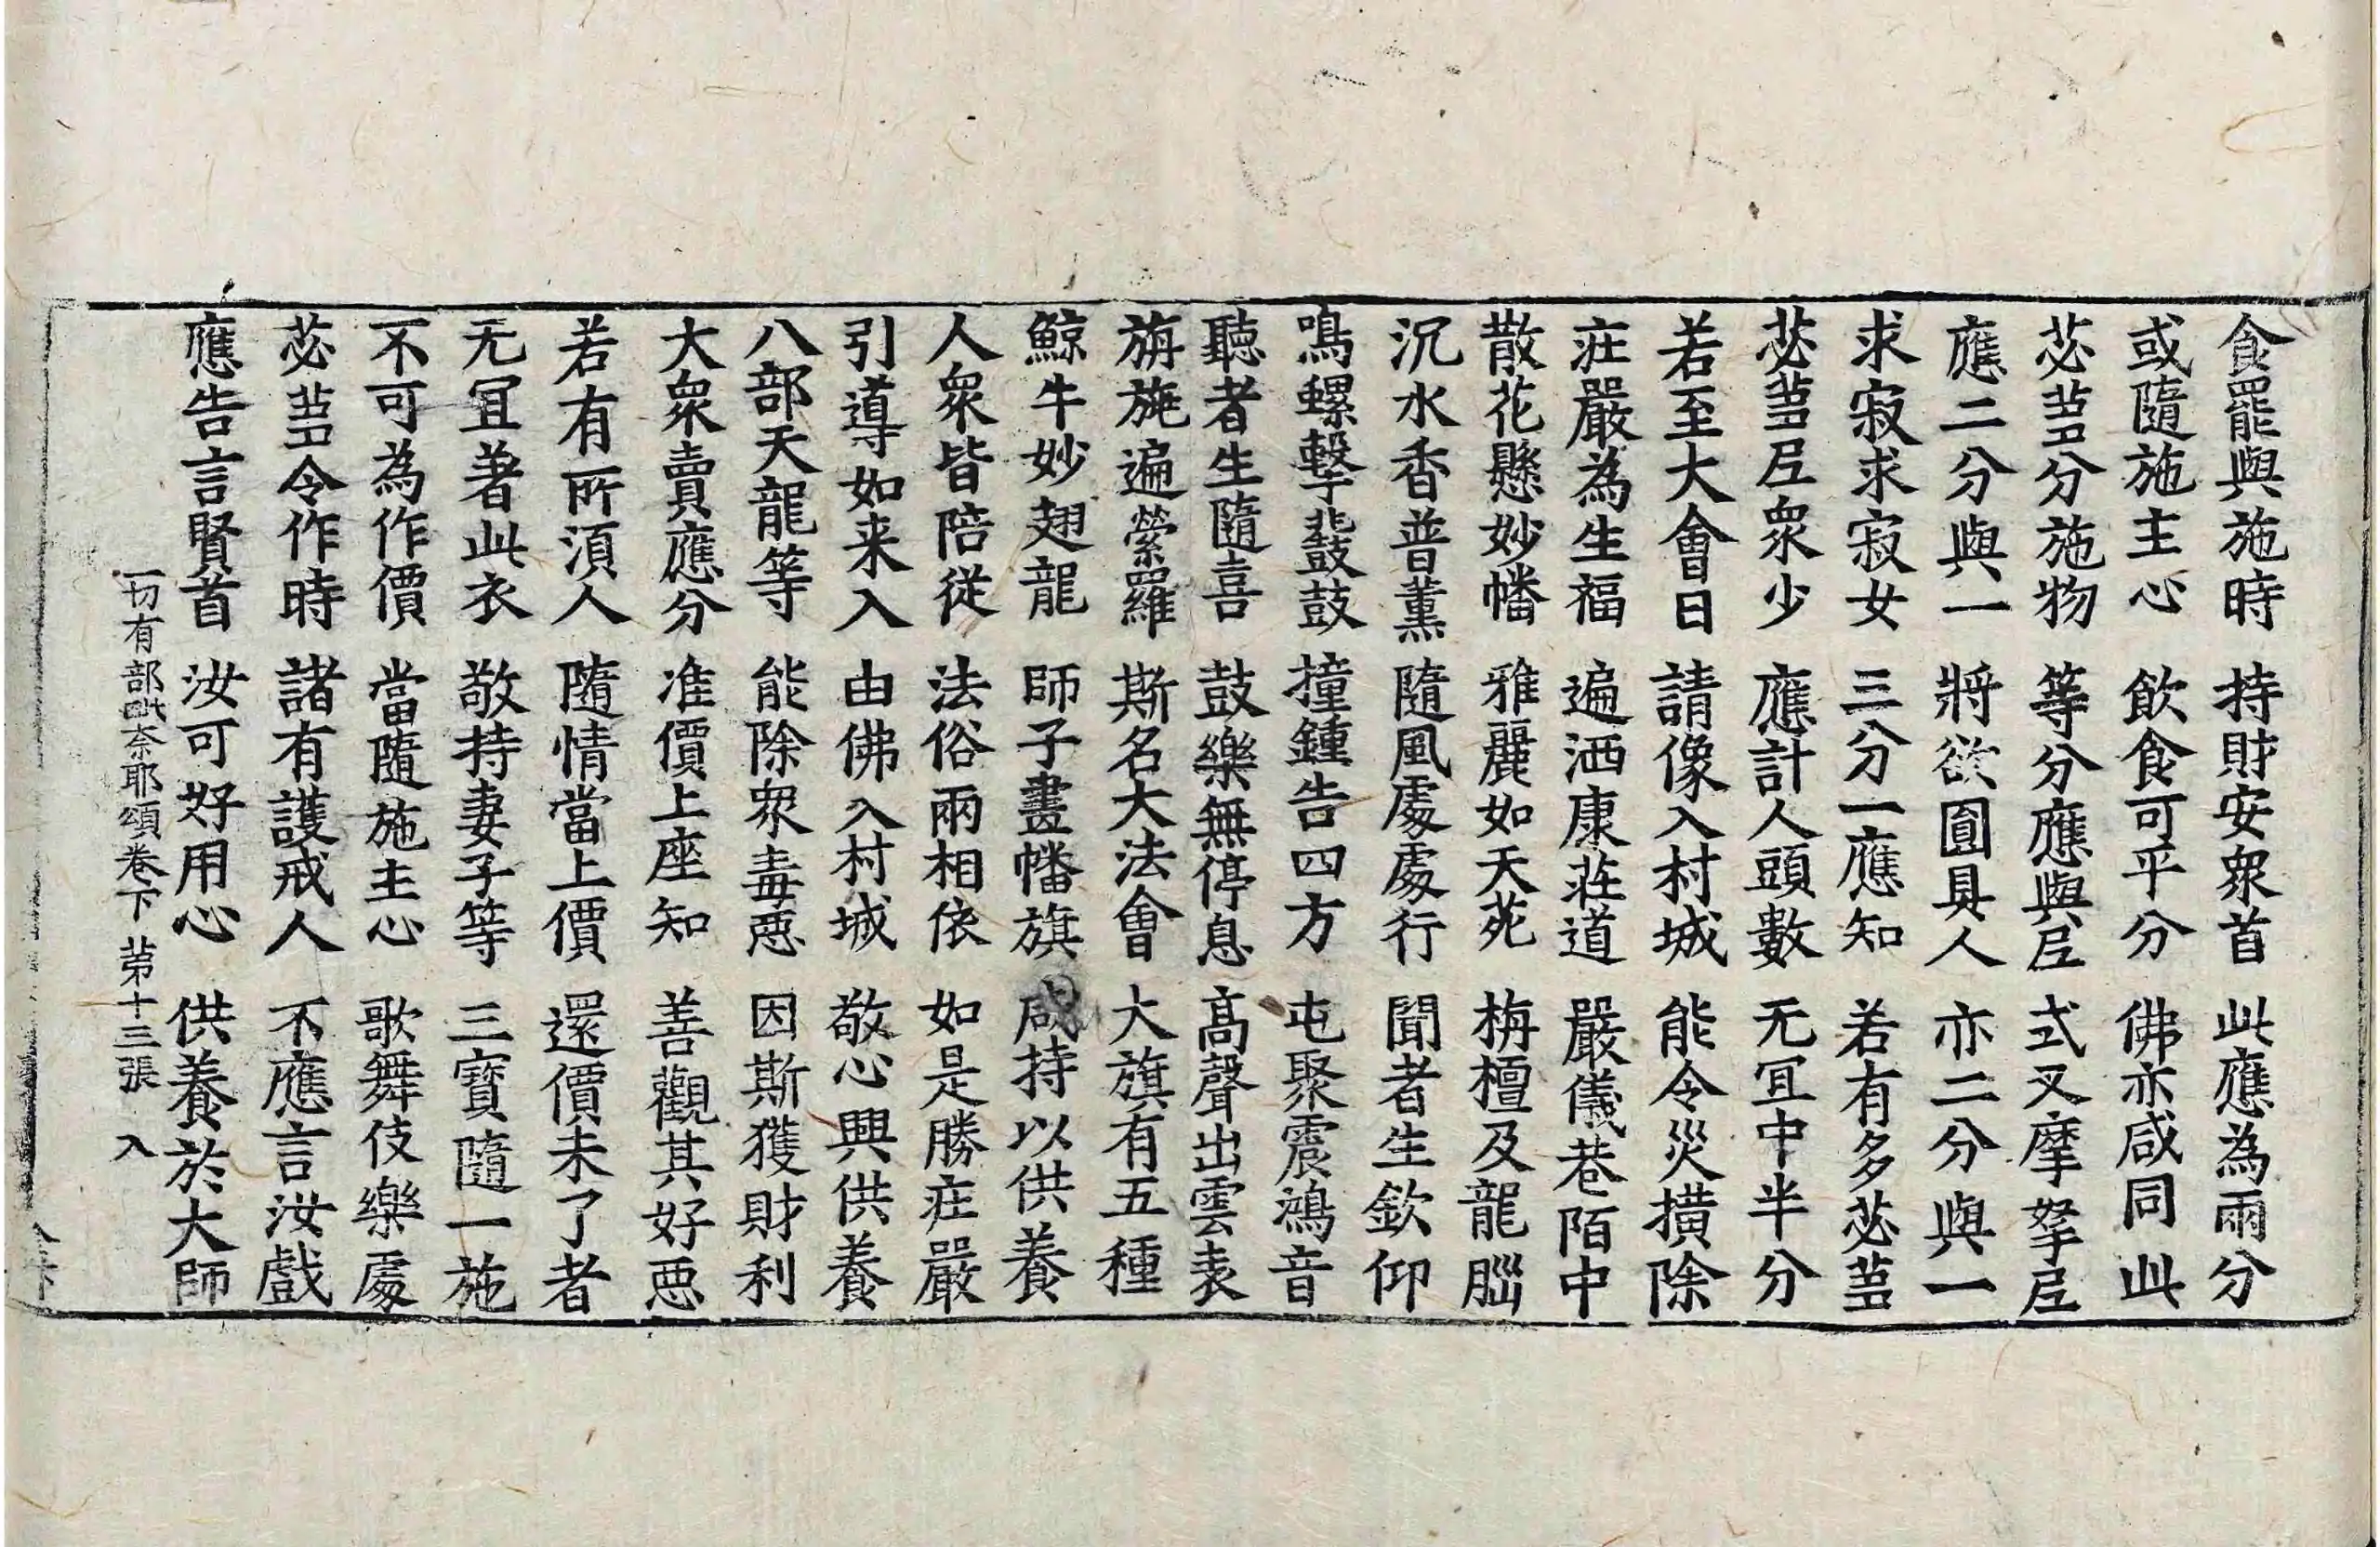 食罷與施時 持財安衆首 此應為兩分
或隨施主心 飲食可平分 佛亦咸同此
苾蒭分施物 等分應與𡰱 式叉摩拏𡰱
應二分與一 將欲圓具人 亦二分與一
求寂求寂女 三分一應知 若有多苾蒭
苾蒭𡰱衆少 應計人頭數 无冝中半分
若至大會日 請像入村城 能令災撗除
庄嚴為生福 遍洒康莊道 嚴儀巷陌中
散花懸妙幡 雅麗如天苑 栴檀及龍腦
沉水香普薰 隨風處處行 聞者生欽仰
鳴螺擊鼙鼓 撞鍾告四方 屯聚震鴻音
聽者生隨喜 鼓樂無停息 高聲出雲表
旃旎遍縈羅 斯名大法會 大旗有五種
鯨牛妙翅龍 師子畫幡旗 咸持以供養
人衆皆陪從 法俗兩相依 如是勝庄嚴
引導如来入 由佛入村城 敬心興供養
八部天龍等 能除衆毒惡 因斯獲財利
大衆賣應分 准價上座知 善觀其好惡
若有所須人 隨情當上價 還價未了者
无冝著此衣 敬持妻子等 三寶隨一施
不可為作價 當隨施主心 歌舞伎樂處
苾蒭令作時 諸有護戒人 不應言汝戲
應告言賢首 汝可好用心 供養於大師
一切有部毗奈耶頌卷下 苐十三張 入